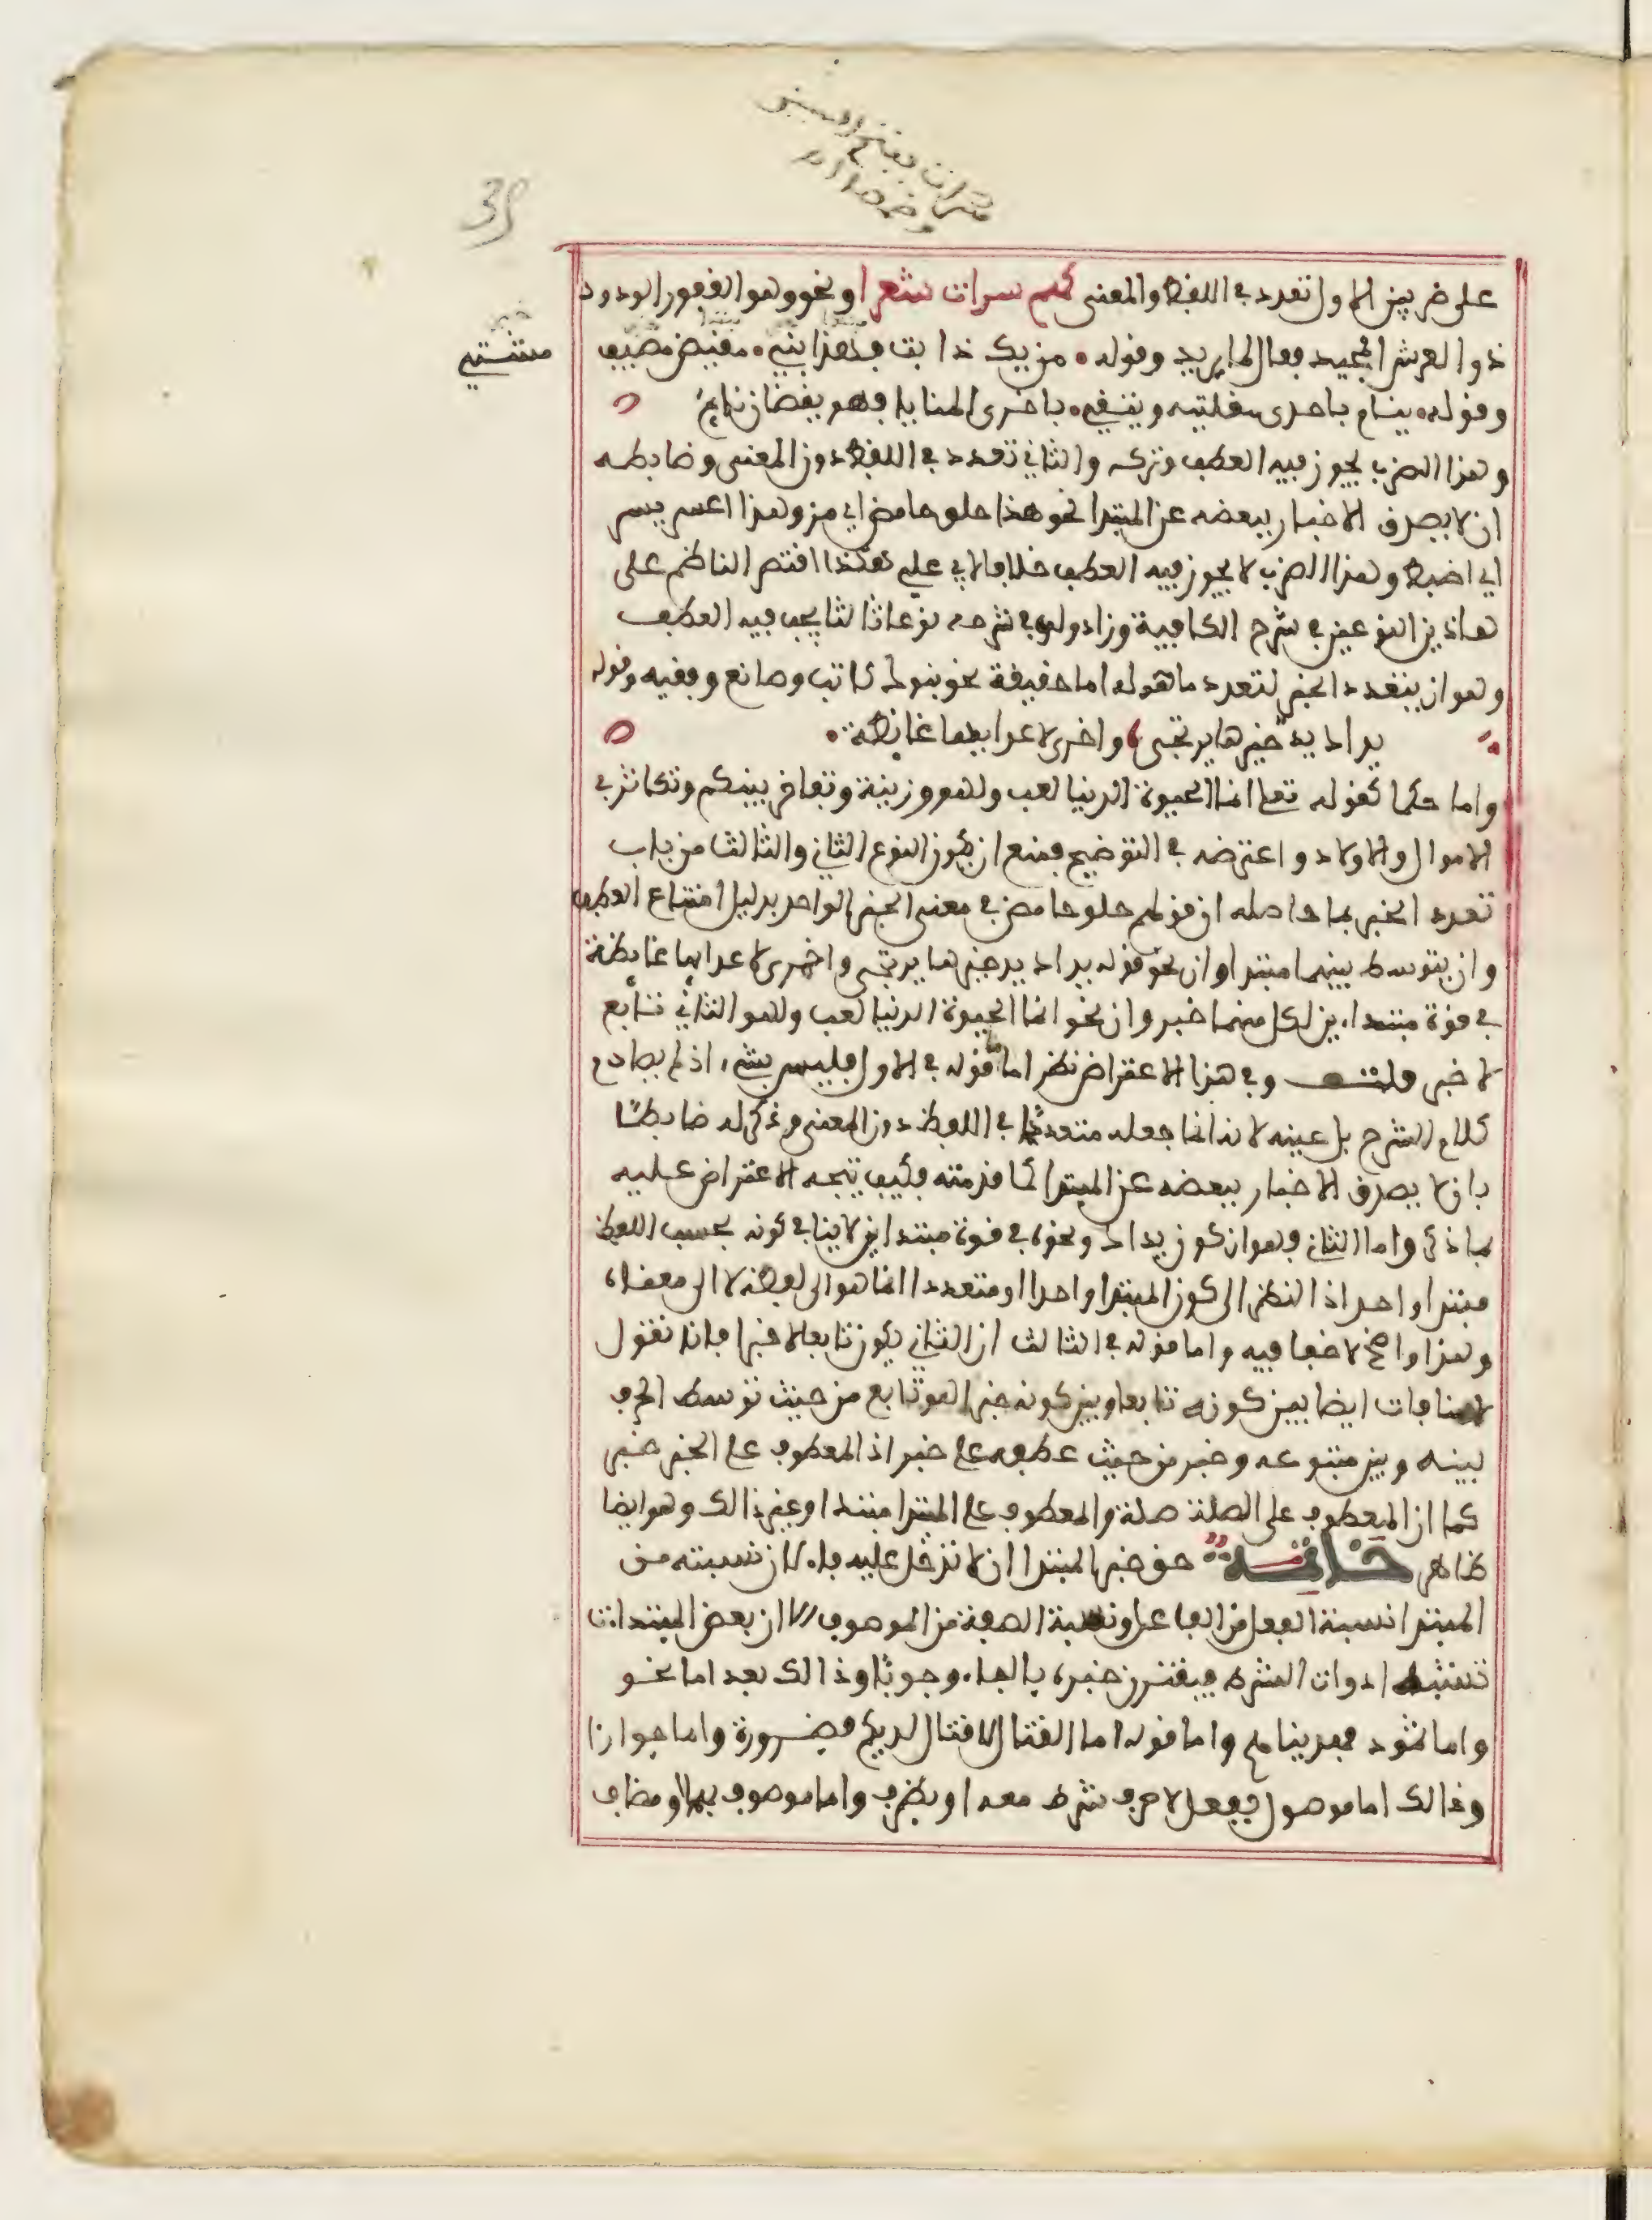 سراة بفتح السين
وضمها
35
على ضربين الاول تعدد في اللفظ والمعنى كهم سراة شعرا ونحو وهو الغفور الودود
ذو العرش المجيد فعال لما يريد وقوله من يك ذا بت فهذا بتي مقيض مصيف
مشتي
وقوله ينام باحدى مقلتيه ويتقي باخرى المنايا فهو يقضان نايم
وهذا الضرب يجوز فيه العطف وتركه والثاني تعدد في اللفظ دون المعنى وضابطه
ان لا يصدق الاخبار ببعضه عن المبتدا نحو هذا حلو حامض اي مز وهذا اعسر يسر
اي اضبط وهذا الضرب لا يجوز فيه العطف خلافا لابي علي هكذا اقتصر الناظم على
هاذين النوعين في شرح الكافية وزاد ولده في شرحه نوعا ثالثا يجب فيه العطف
وهو ان يتعدد الخبر لتعدد ما هو له اما حقيقة نحو بنوك كاتب وصانع وفقيه وقوله
يداك يد خيرها يرتجى واخرى لاعدايها غايظه
واما حكما كقوله تعلى انما الحيوة الدنيا لعب ولهو وزينة وتفاخر بينكم وتكاثر في
الاموال والاولاد واعترضه في التوضيح فمنع ان يكون النوع الثاني والثالث من باب
تعدد الخبر بما حاصله ان قولهم حلو حامض في معنى الخبر الواحد بدليل امتناع العطف
وان يتوسط بينهما مبتدا وان نحو قوله يداك يد خيرها يرتجى واخرى لاعدايها غايظة
في قوة مبتداين لكل منهما خبر وان نحو انما الحيوة الدنيا لعب ولهو الثاني تابع
لا خبر قلت وفي هذا الاعتراض نظر اما ما قوله في الاول فليس بشيء اذ لم يصادم
كلام الشرح بل عينه لانه انما جعله متعددا في اللفظ دون المعنى وذكر له ضابطا
بان لا يصدق الاخبار ببعضه عن المبتدا كما قدمته فكيف يتجه الاعتراض عليه
بما ذكر واما الثاني فهو ان كون يداك ونحوه في قوة مبتداين لا ينافي كونه بحسب اللفظ
مبتدا واحد اذ النظر الى كون المبتدا واحدا او متعددا انما هو الى لفظه لا الى معناه
وهذا واضح لا خفا فيه واما قوله في الثالث ان الثاني يكون تابعا لا خبرا فانا نقول
لا منافات ايضا بين كونه تابعا وبين كونه خبرا هو تابع من حيث توسط الحرف
بينه وبين متبوعه وخبر من حيث عطفه على خبر اذ المعطوف على الخبر خبر
كما ان المعطوف على الصلة صلة والمعطوف على المبتدا مبتدا وغير ذالك وهو ايضا
ظاهر خاتمة حق خبر المبتدا ان لا تدخل عليه فاء لان نسبته من
المبتدا نسبة الفعل من الفاعل ونسبة الصفة من الموصوف الا ان بعض المبتدات
تشبه ادوات الشرط فيقترن خبره بالفاء وجوبا وذالك بعد اما نحو
واما ثمود فهديناهم واما قوله اما القتال لا قتال لديكم فضرورة واما جوازا
وذالك اما موصول بفعل لا حرف شرط معه او بظرف واما موصوف بهما او مضاف